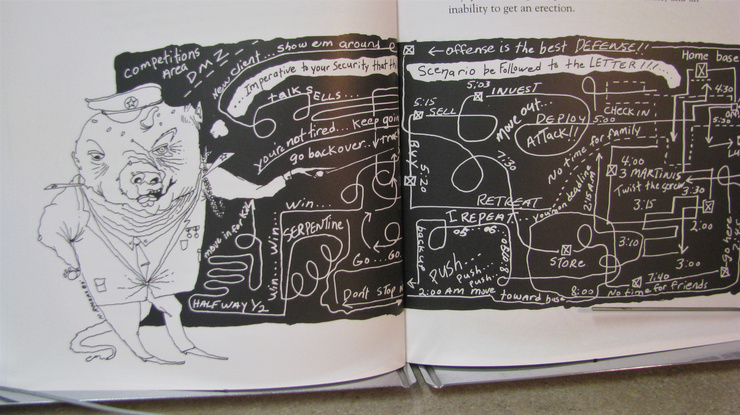 inability to get an erection.
competitions
AREA
DMZ
New client... show em around
Imperative to your Security that th
talk SELLS...
you're not tired... keep goin
go back over...
move in for Kill
win...
win... win...
SERPENTINE
Go... Go
HALF WAY 1/2
Don't stop
← offense is the best DEFENSE!!
Scenario be Followed to the LETTER!!!...
Home base
5:03
INVEST
5:15
SELL
move out...
DEPLOY
Attack!!
CHECK IN
5:00
4:30
5:30
Buy!
5:20
7:30
No time for family
4:00
3 MARTINIS
Twist the screw
3:30
3:15
2:00
RETREAT
I REPEAT...
you're on deadline
2:15 AM
back up
go go go go
PUSH...
Push...
push.
STORE
3:10
3:00
go here
2:00 AM move toward base
8:00
7:40
No time for friends